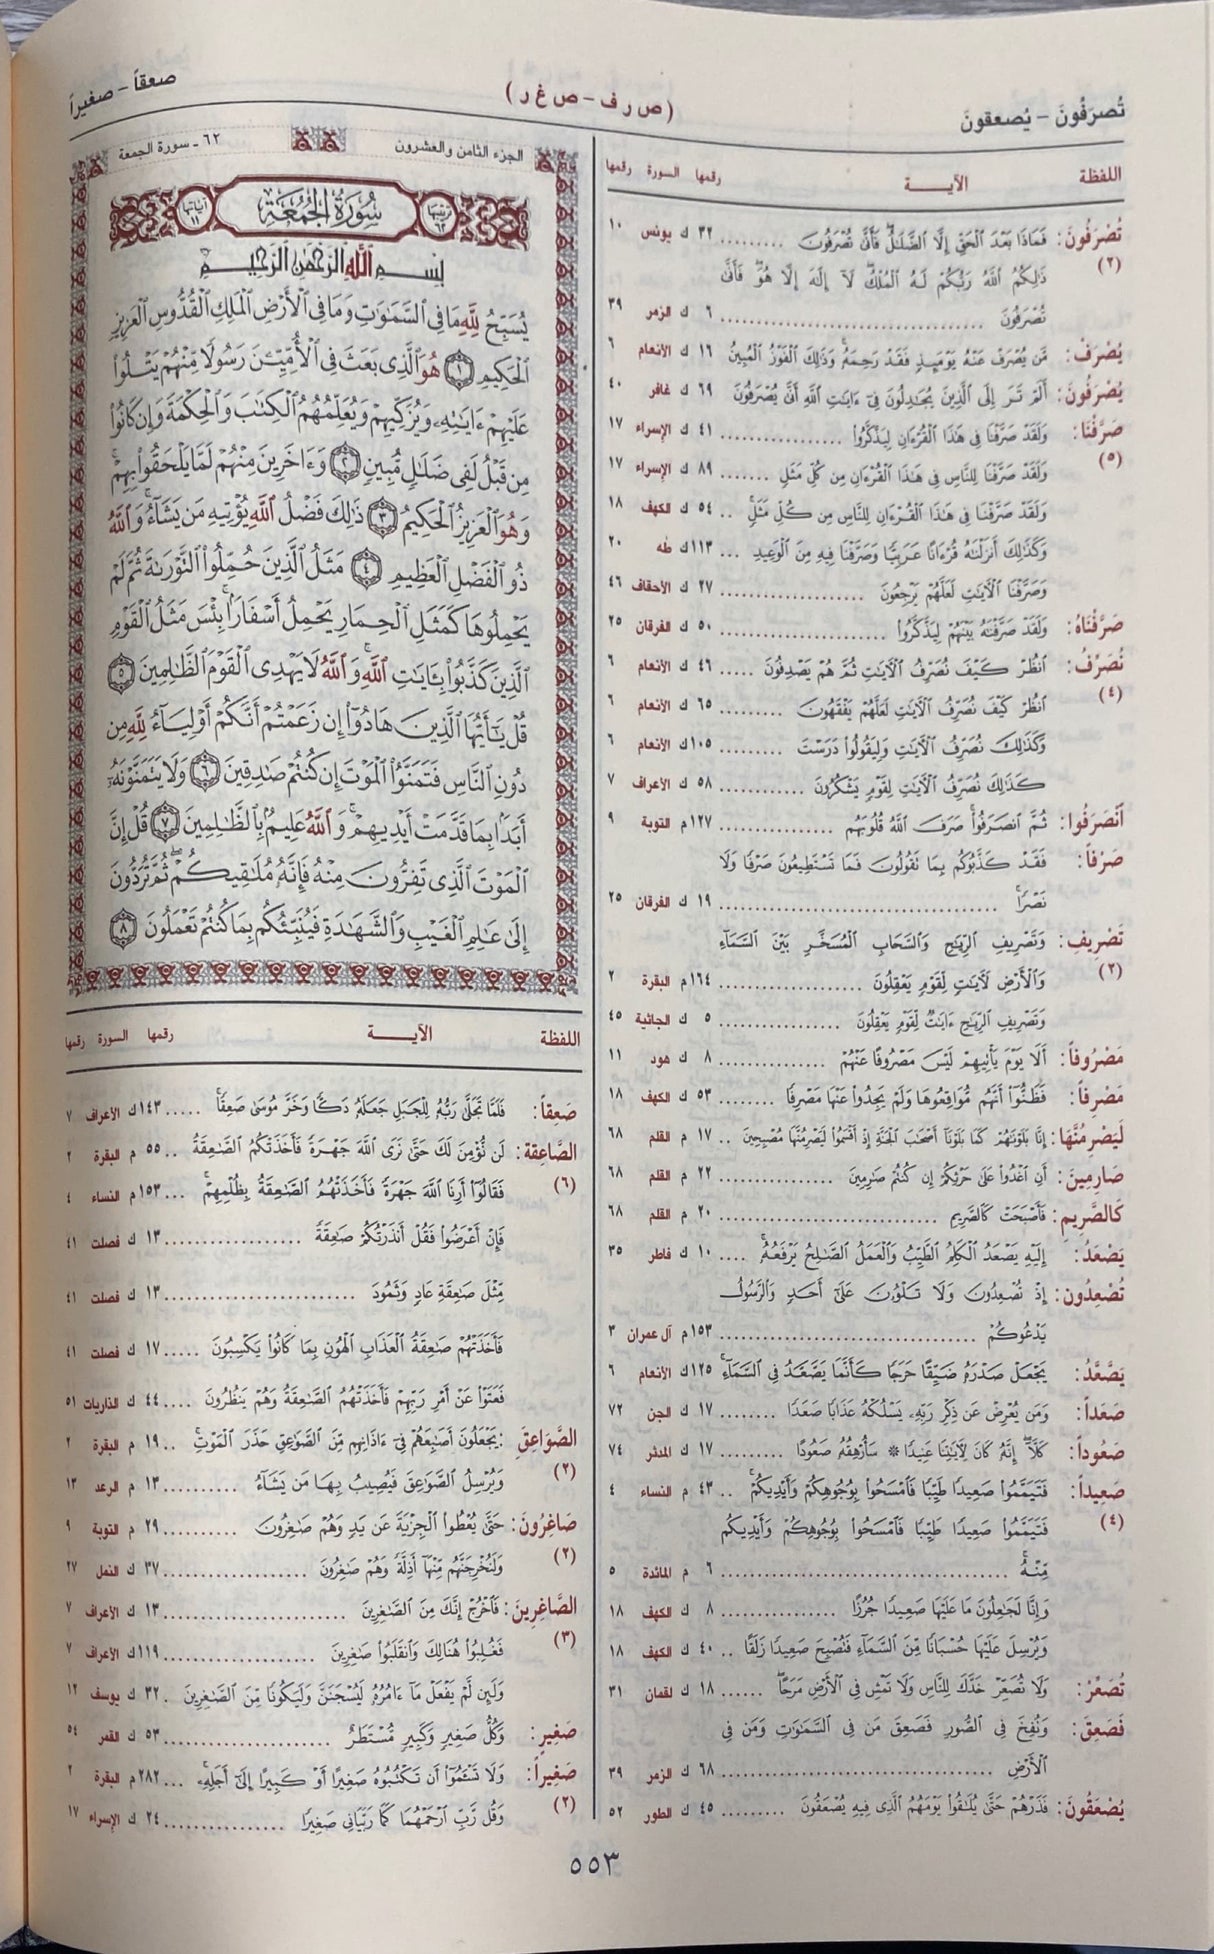 تُصرَفُونَ - يُصعقونَ
( ص ر ف - ص غ ر )
صعقاً - صغيراً
اللفظة الآيــة رقمها السورة رقمها
تُصْرَفُونَ: فَمَاذَا بَعْدَ الْحَقِّ إِلَّا الضَّلَالُ فَأَنَّى تُصْرَفُونَ ......... ٣٢ ك يونس ١٠
(٢) ذَلِكُمُ اللَّهُ رَبُّكُمْ لَهُ الْمُلْكُ لَا إِلَهَ إِلَّا هُوَ فَأَنَّى
تُصْرَفُونَ ................................. ٦ ك الزمر ٣٩
يُصْرَفْ: مَّن يُصْرَفْ عَنْهُ يَوْمَئِذٍ فَقَدْ رَحِمَهُ وَذَلِكَ الْفَوْزُ الْمُبِينُ ١٦ ك الأنعام ٦
يُصْرَفُونَ: أَلَمْ تَرَ إِلَى الَّذِينَ يُجَادِلُونَ فِي ءَايَاتِ اللَّهِ أَنَّى يُصْرَفُونَ ٦٩ ك غافر ٤٠
صَرَّفْنَا: وَلَقَدْ صَرَّفْنَا فِي هَذَا الْقُرْءَانِ لِيَذَّكَّرُوا ............... ٤١ ك الإسراء ١٧
(٥) وَلَقَدْ صَرَّفْنَا لِلنَّاسِ فِي هَذَا الْقُرْءَانِ مِن كُلِّ مَثَلٍ ....... ٨٩ ك الإسراء ١٧
وَلَقَدْ صَرَّفْنَا فِي هَذَا الْقُرْءَانِ لِلنَّاسِ مِن كُلِّ مَثَلٍ .. ٥٤ ك الكهف ١٨
وَكَذَلِكَ أَنزَلْنَاهُ قُرْءَانًا عَرَبِيًّا وَصَرَّفْنَا فِيهِ مِنَ الْوَعِيدِ ... ١١٣ك طه ٢٠
وَصَرَّفْنَا الْآيَاتِ لَعَلَّهُمْ يَرْجِعُونَ .................. ٢٧ ك الأحقاف ٤٦
صَرَّفْنَاهُ: وَلَقَدْ صَرَّفْنَاهُ بَيْنَهُمْ لِيَذَّكَّرُوا ..................... ٥٠ ك الفرقان ٢٥
نُصَرِّفُ: انظُرْ كَيْفَ نُصَرِّفُ الْآيَاتِ ثُمَّ هُمْ يَصْدِفُونَ ..... ٤٦ ك الأنعام ٦
(٤) انظُرْ كَيْفَ نُصَرِّفُ الْآيَاتِ لَعَلَّهُمْ يَفْقَهُونَ ......... ٦٥ ك الأنعام ٦
وَكَذَلِكَ نُصَرِّفُ الْآيَاتِ وَلِيَقُولُوا دَرَسْتَ ......... ١٠٥ك الأنعام ٦
كَذَلِكَ نُصَرِّفُ الْآيَاتِ لِقَوْمٍ يَشْكُرُونَ ............ ٥٨ ك الأعراف ٧
انْصَرَفُوا: ثُمَّ انصَرَفُوا صَرَفَ اللَّهُ قُلُوبَهُم ............... ١٢٧م التوبة ٩
صَرْفاً: فَقَدْ كَذَّبُوكُم بِمَا تَقُولُونَ فَمَا تَسْتَطِيعُونَ صَرْفًا وَلَا
نَصْرًا ................................. ١٩ ك الفرقان ٢٥
تَصْرِيف: وَتَصْرِيفِ الرِّيَاحِ وَالسَّحَابِ الْمُسَخَّرِ بَيْنَ السَّمَاءِ
(٢) وَالْأَرْضِ لَآيَاتٍ لِّقَوْمٍ يَعْقِلُونَ .................. ١٦٤م البقرة ٢
وَتَصْرِيفِ الرِّيَاحِ ءَايَاتٌ لِّقَوْمٍ يَعْقِلُونَ ............... ٥ ك الجاثية ٤٥
مَصْرُوفاً: أَلَا يَوْمَ يَأْتِيهِمْ لَيْسَ مَصْرُوفًا عَنْهُمْ ............. ٨ ك هود ١١
مَصْرِفاً: فَظَنُّوا أَنَّهُم مُّوَاقِعُوهَا وَلَمْ يَجِدُوا عَنْهَا مَصْرِفًا ........ ٥٣ ك الكهف ١٨
لَيَصْرِمُنَّهَا: إِنَّا بَلَوْنَاهُمْ كَمَا بَلَوْنَا أَصْحَابَ الْجَنَّةِ إِذْ أَقْسَمُوا لَيَصْرِمُنَّهَا مُصْبِحِينَ .. ١٧ م القلم ٦٨
صَارِمِينَ: أَنِ اغْدُوا عَلَى حَرْثِكُمْ إِن كُنتُمْ صَارِمِينَ ............... ٢٢ م القلم ٦٨
كَالصَّرِيمِ: فَأَصْبَحَتْ كَالصَّرِيمِ ............................. ٢٠ م القلم ٦٨
يَصْعَدُ: إِلَيْهِ يَصْعَدُ الْكَلِمُ الطَّيِّبُ وَالْعَمَلُ الصَّالِحُ يَرْفَعُهُ .... ١٠ ك فاطر ٣٥
تُصْعِدُون: إِذْ تُصْعِدُونَ وَلَا تَلْوُونَ عَلَى أَحَدٍ وَالرَّسُولُ
يَدْعُوكُمْ ................................. ١٥٣م آل عمران ٣
يَصَّعَّدُ: يَجْعَلْ صَدْرَهُ ضَيِّقًا حَرَجًا كَأَنَّمَا يَصَّعَّدُ فِي السَّمَاءِ ١٢٥ك الأنعام ٦
صَعَداً: وَمَن يُعْرِضْ عَن ذِكْرِ رَبِّهِ يَسْلُكْهُ عَذَابًا صَعَدًا ....... ١٧ ك الجن ٧٢
صَعُوداً: كَلَّا إِنَّهُ كَانَ لِآيَاتِنَا عَنِيدًا * سَأُرْهِقُهُ صَعُودًا ........ ١٧ ك المدثر ٧٤
صَعِيداً: فَتَيَمَّمُوا صَعِيدًا طَيِّبًا فَامْسَحُوا بِوُجُوهِكُمْ وَأَيْدِيكُمْ .. ٤٣ م النساء ٤
(٤) فَتَيَمَّمُوا صَعِيدًا طَيِّبًا فَامْسَحُوا بِوُجُوهِكُمْ وَأَيْدِيكُم
مِّنْهُ .................................... ٦ م المائدة ٥
وَإِنَّا لَجَاعِلُونَ مَا عَلَيْهَا صَعِيدًا جُرُزًا ............... ٨ ك الكهف ١٨
وَيُرْسِلَ عَلَيْهَا حُسْبَانًا مِّنَ السَّمَاءِ فَتُصْبِحَ صَعِيدًا زَلَقًا .. ٤٠ ك الكهف ١٨
تُصَعِّرْ: وَلَا تُصَعِّرْ خَدَّكَ لِلنَّاسِ وَلَا تَمْشِ فِي الْأَرْضِ مَرَحًا ...... ١٨ ك لقمان ٣١
فَصَعِقَ: وَنُفِخَ فِي الصُّورِ فَصَعِقَ مَن فِي السَّمَاوَاتِ وَمَن فِي
الْأَرْضِ ................................. ٦٨ ك الزمر ٣٩
يُصْعَقُونَ: فَذَرْهُمْ حَتَّى يُلَاقُوا يَوْمَهُمُ الَّذِي فِيهِ يُصْعَقُونَ ......... ٤٥ ك الطور ٥٢
الجزء الثامن والعشرون ٦٢ ـ سورة الجمعة
ترتيبها ٦٢ سُورَةُ الجُمُعَةِ آياتها ١١
بِسْمِ اللَّهِ الرَّحْمَنِ الرَّحِيمِ
يُسَبِّحُ لِلَّهِ مَا فِي السَّمَاوَاتِ وَمَا فِي الْأَرْضِ الْمَلِكِ الْقُدُّوسِ الْعَزِيزِ
الْحَكِيمِ ١ هُوَ الَّذِي بَعَثَ فِي الْأُمِّيِّينَ رَسُولًا مِّنْهُمْ يَتْلُوا
عَلَيْهِمْ ءَايَاتِهِ وَيُزَكِّيهِمْ وَيُعَلِّمُهُمُ الْكِتَابَ وَالْحِكْمَةَ وَإِن كَانُوا
مِن قَبْلُ لَفِي ضَلَالٍ مُّبِينٍ ٢ وَءَاخَرِينَ مِنْهُمْ لَمَّا يَلْحَقُوا بِهِمْ
وَهُوَ الْعَزِيزُ الْحَكِيمُ ٣ ذَلِكَ فَضْلُ اللَّهِ يُؤْتِيهِ مَن يَشَاءُ وَاللَّهُ
ذُو الْفَضْلِ الْعَظِيمِ ٤ مَثَلُ الَّذِينَ حُمِّلُوا التَّوْرَاةَ ثُمَّ لَمْ
يَحْمِلُوهَا كَمَثَلِ الْحِمَارِ يَحْمِلُ أَسْفَارًا بِئْسَ مَثَلُ الْقَوْمِ
الَّذِينَ كَذَّبُوا بِآيَاتِ اللَّهِ وَاللَّهُ لَا يَهْدِي الْقَوْمَ الظَّالِمِينَ ٥
قُلْ يَا أَيُّهَا الَّذِينَ هَادُوا إِن زَعَمْتُمْ أَنَّكُمْ أَوْلِيَاءُ لِلَّهِ مِن
دُونِ النَّاسِ فَتَمَنَّوُا الْمَوْتَ إِن كُنتُمْ صَادِقِينَ ٦ وَلَا يَتَمَنَّوْنَهُ
أَبَدًا بِمَا قَدَّمَتْ أَيْدِيهِمْ وَاللَّهُ عَلِيمٌ بِالظَّالِمِينَ ٧ قُلْ إِنَّ
الْمَوْتَ الَّذِي تَفِرُّونَ مِنْهُ فَإِنَّهُ مُلَاقِيكُمْ ثُمَّ تُرَدُّونَ
إِلَى عَالِمِ الْغَيْبِ وَالشَّهَادَةِ فَيُنَبِّئُكُم بِمَا كُنتُمْ تَعْمَلُونَ ٨
اللفظة الآيــة رقمها السورة رقمها
صَعِقاً: فَلَمَّا تَجَلَّى رَبُّهُ لِلْجَبَلِ جَعَلَهُ دَكًّا وَخَرَّ مُوسَى صَعِقًا ..... ١٤٣ك الأعراف ٧
الصَّاعِقة: لَن نُّؤْمِنَ لَكَ حَتَّى نَرَى اللَّهَ جَهْرَةً فَأَخَذَتْكُمُ الصَّاعِقَةُ .. ٥٥ م البقرة ٢
(٦) فَقَالُوا أَرِنَا اللَّهَ جَهْرَةً فَأَخَذَتْهُمُ الصَّاعِقَةُ بِظُلْمِهِمْ ... ١٥٣م النساء ٤
فَإِنْ أَعْرَضُوا فَقُلْ أَنذَرْتُكُمْ صَاعِقَةً ................. ١٣ ك فصلت ٤١
مِّثْلَ صَاعِقَةِ عَادٍ وَثَمُودَ ........................ ١٣ ك فصلت ٤١
فَأَخَذَتْهُمْ صَاعِقَةُ الْعَذَابِ الْهُونِ بِمَا كَانُوا يَكْسِبُونَ ..... ١٧ ك فصلت ٤١
فَعَتَوْا عَنْ أَمْرِ رَبِّهِمْ فَأَخَذَتْهُمُ الصَّاعِقَةُ وَهُمْ يَنظُرُونَ .... ٤٤ ك الذاريات ٥١
الصَّوَاعِقِ: يَجْعَلُونَ أَصَابِعَهُمْ فِي ءَاذَانِهِم مِّنَ الصَّوَاعِقِ حَذَرَ الْمَوْتِ .. ١٩ م البقرة ٢
(٢) وَيُرْسِلُ الصَّوَاعِقَ فَيُصِيبُ بِهَا مَن يَشَاءُ .......... ١٣ م الرعد ١٣
صَاغِرُونَ: حَتَّى يُعْطُوا الْجِزْيَةَ عَن يَدٍ وَهُمْ صَاغِرُونَ .......... ٢٩ م التوبة ٩
(٢) وَلَنُخْرِجَنَّهُم مِّنْهَا أَذِلَّةً وَهُمْ صَاغِرُونَ .................. ٣٧ ك النمل ٢٧
الصَّاغِرِينَ: فَاخْرُجْ إِنَّكَ مِنَ الصَّاغِرِينَ ....................... ١٣ ك الأعراف ٧
(٣) فَغُلِبُوا هُنَالِكَ وَانقَلَبُوا صَاغِرِينَ .................... ١١٩ك الأعراف ٧
وَلَئِن لَّمْ يَفْعَلْ مَا ءَامُرُهُ لَيُسْجَنَنَّ وَلَيَكُونًا مِّنَ الصَّاغِرِينَ . ٣٢ ك يوسف ١٢
صَغِيرٍ: وَكُلُّ صَغِيرٍ وَكَبِيرٍ مُّسْتَطَرٌ ..................... ٥٣ ك القمر ٥٤
صَغِيراً: وَلَا تَسْأَمُوا أَن تَكْتُبُوهُ صَغِيرًا أَوْ كَبِيرًا إِلَى أَجَلِهِ ... ٢٨٢م البقرة ٢
(٢) وَقُل رَّبِّ ارْحَمْهُمَا كَمَا رَبَّيَانِي صَغِيرًا ............... ٢٤ ك الإسراء ١٧
٥٥٣